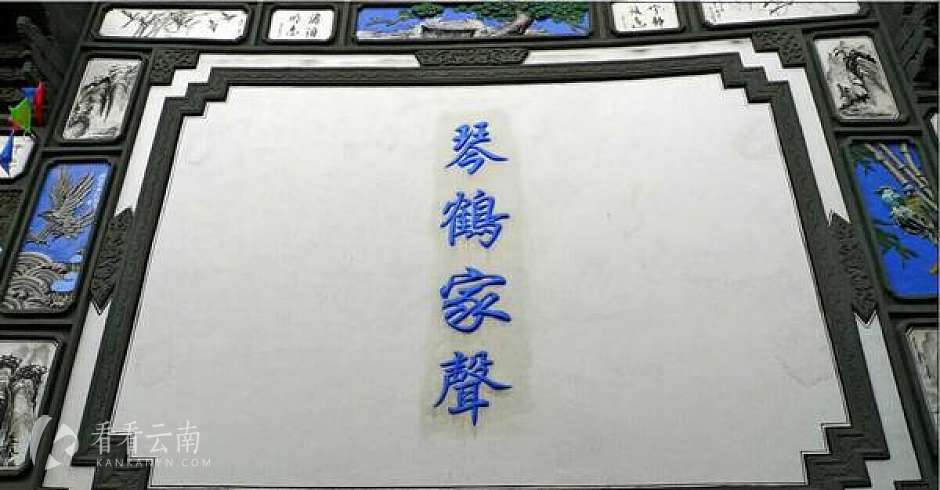 琴鶴家聲
看看云南
KANKANYN.COM